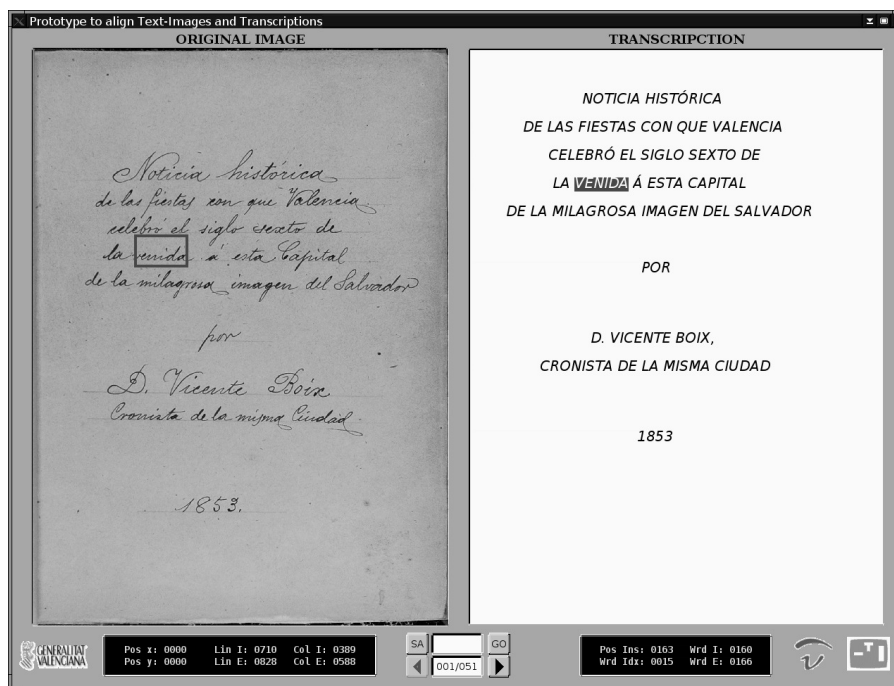 Prototype to align Text-Images and Transcriptions
ORIGINAL IMAGE
Noticia histórica
de las fiestas con que Valencia
celebró el siglo sexto de
la venida á esta Capital
de la milagrosa imagen del Salvador
por
D. Vicente Boix
Cronista de la misma Ciudad
1853.
TRANSCRIPCTION
NOTICIA HISTÓRICA
DE LAS FIESTAS CON QUE VALENCIA
CELEBRÓ EL SIGLO SEXTO DE
LA VENIDA Á ESTA CAPITAL
DE LA MILAGROSA IMAGEN DEL SALVADOR
POR
D. VICENTE BOIX,
CRONISTA DE LA MISMA CIUDAD
1853
GENERALITAT
VALENCIANA
Pos x: 0000 Lin I: 0710 Col I: 0389
Pos y: 0000 Lin E: 0828 Col E: 0588
SA GO
001/051
Pos Ins: 0163 Wrd I: 0160
Wrd Idx: 0015 Wrd E: 0166